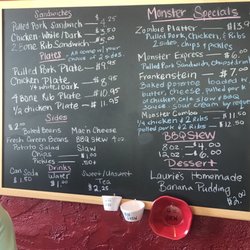 Sandwiches
Pulled Pork Sandwich — $4.25
Chicken - White/Dark — $3.50
2 Bone Rib Sandwich — $5.00
Plates - All come w/ your choice of 2 sides
Pulled Pork Plate — $8.95
Chicken Plate — $8.95
1/4 white or dark
4 Bone Rib Plate — $10.95
1/2 chicken Plate — $11.95
Sides
$2.00
Baked Beans
Mac n Cheese
Fresh Green Beans
BBQ Stew
Potato Salad
Slaw
Chips
Pickles
Drinks
Can Soda $1.50
Water $1.00
Sweet/Unsweet Tea
$2.25
Monster Specials
Zombie Platter — $13
Pulled Pork, Chicken, & Ribs
2 sides, chips & pickles
Monster Express — $6.00
Pulled Pork Sandwich
Frankenstein — $7.
Baked potato loaded w/
butter, cheese, pulled pork
or chicken, cole slaw & BBQ
sauce, sour cream by request
Monster Combo
1/4 chicken & 2 Ribs — $11.50
pulled pork & 2 Ribs — $12.50
BBQ Stew
8oz — $4.00
12oz — $6.00
Dessert
Laurie's Homemade
Banana Pudding